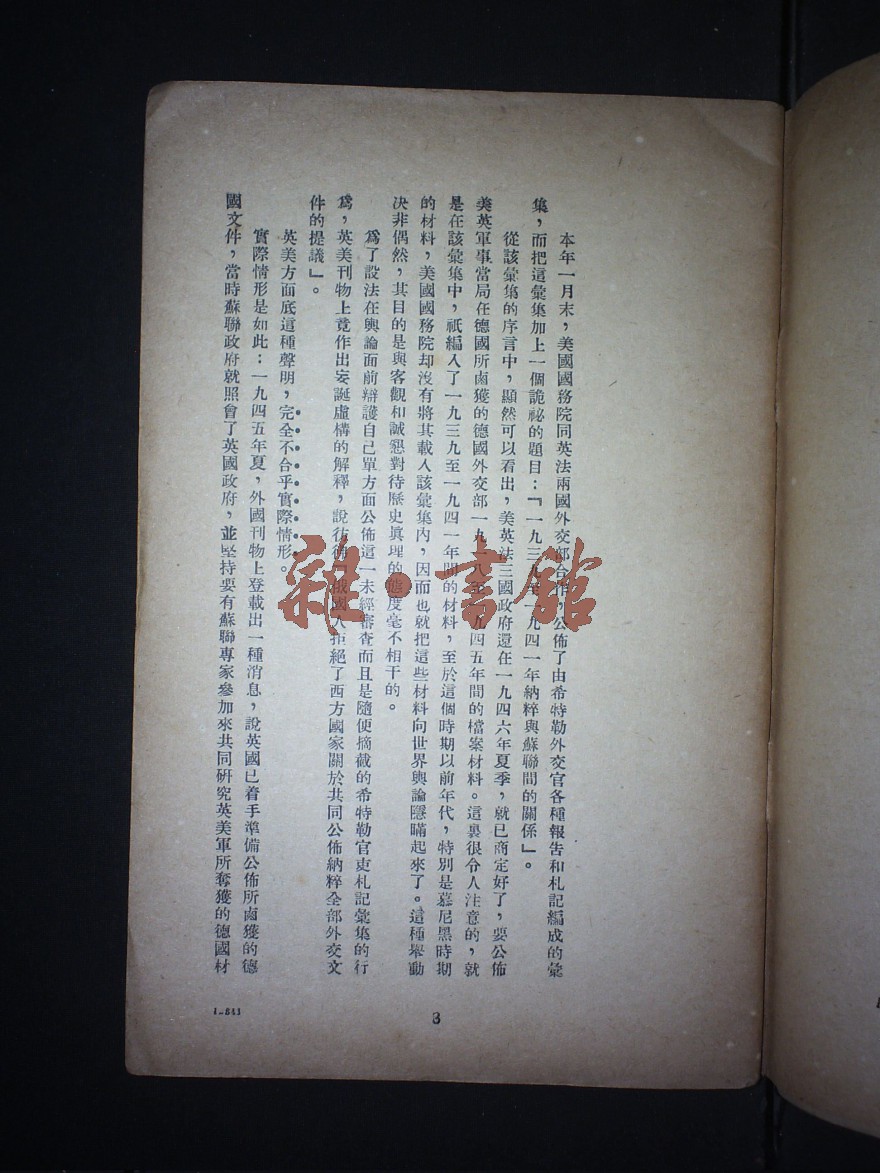 本年一月末，美國國務院同英法兩國外交部合作，公佈了由希特勒外交官各種報告和札記編成的彙
集，而把這彙集加上一個詭祕的題目：『一九三九至一九四一年納粹與蘇聯間的關係』。
從該彙集的序言中，顯然可以看出，美英法三國政府還在一九四六年夏季，就已商定好了，要公佈
美英軍事當局在德國所鹵獲的德國外交部一九一八至一九四五年間的檔案材料。這裏很令人注意的，就
是在該彙集中，祇編入了一九三九至一九四一年間的材料，至於這個時期以前年代，特別是慕尼黑時期
的材料，美國國務院却沒有將其載入該彙集內，因而也就把這些材料向世界輿論隱瞞起來了。這種舉動
决非偶然，其目的是與客觀和誠懇對待歷史眞理的態度毫不相干的。
爲了設法在輿論面前辯護自己單方面公佈這一未經審查而且是隨便摘截的希特勒官吏札記彙集的行
爲，英美刊物上竟作出妄誕虛構的解釋，說彷彿『俄國人拒絕了西方國家關於共同公佈納粹全部外交文
件的提議』。
英美方面底這種聲明，完全不合乎實際情形。
實際情形是如此：一九四五年夏，外國刊物上登載出一種消息，說英國已着手準備公佈所鹵獲的德
國文件，當時蘇聯政府就照會了英國政府，並堅持要有蘇聯專家參加來共同研究英美軍所奪獲的德國材
1-541
3
雜·書館